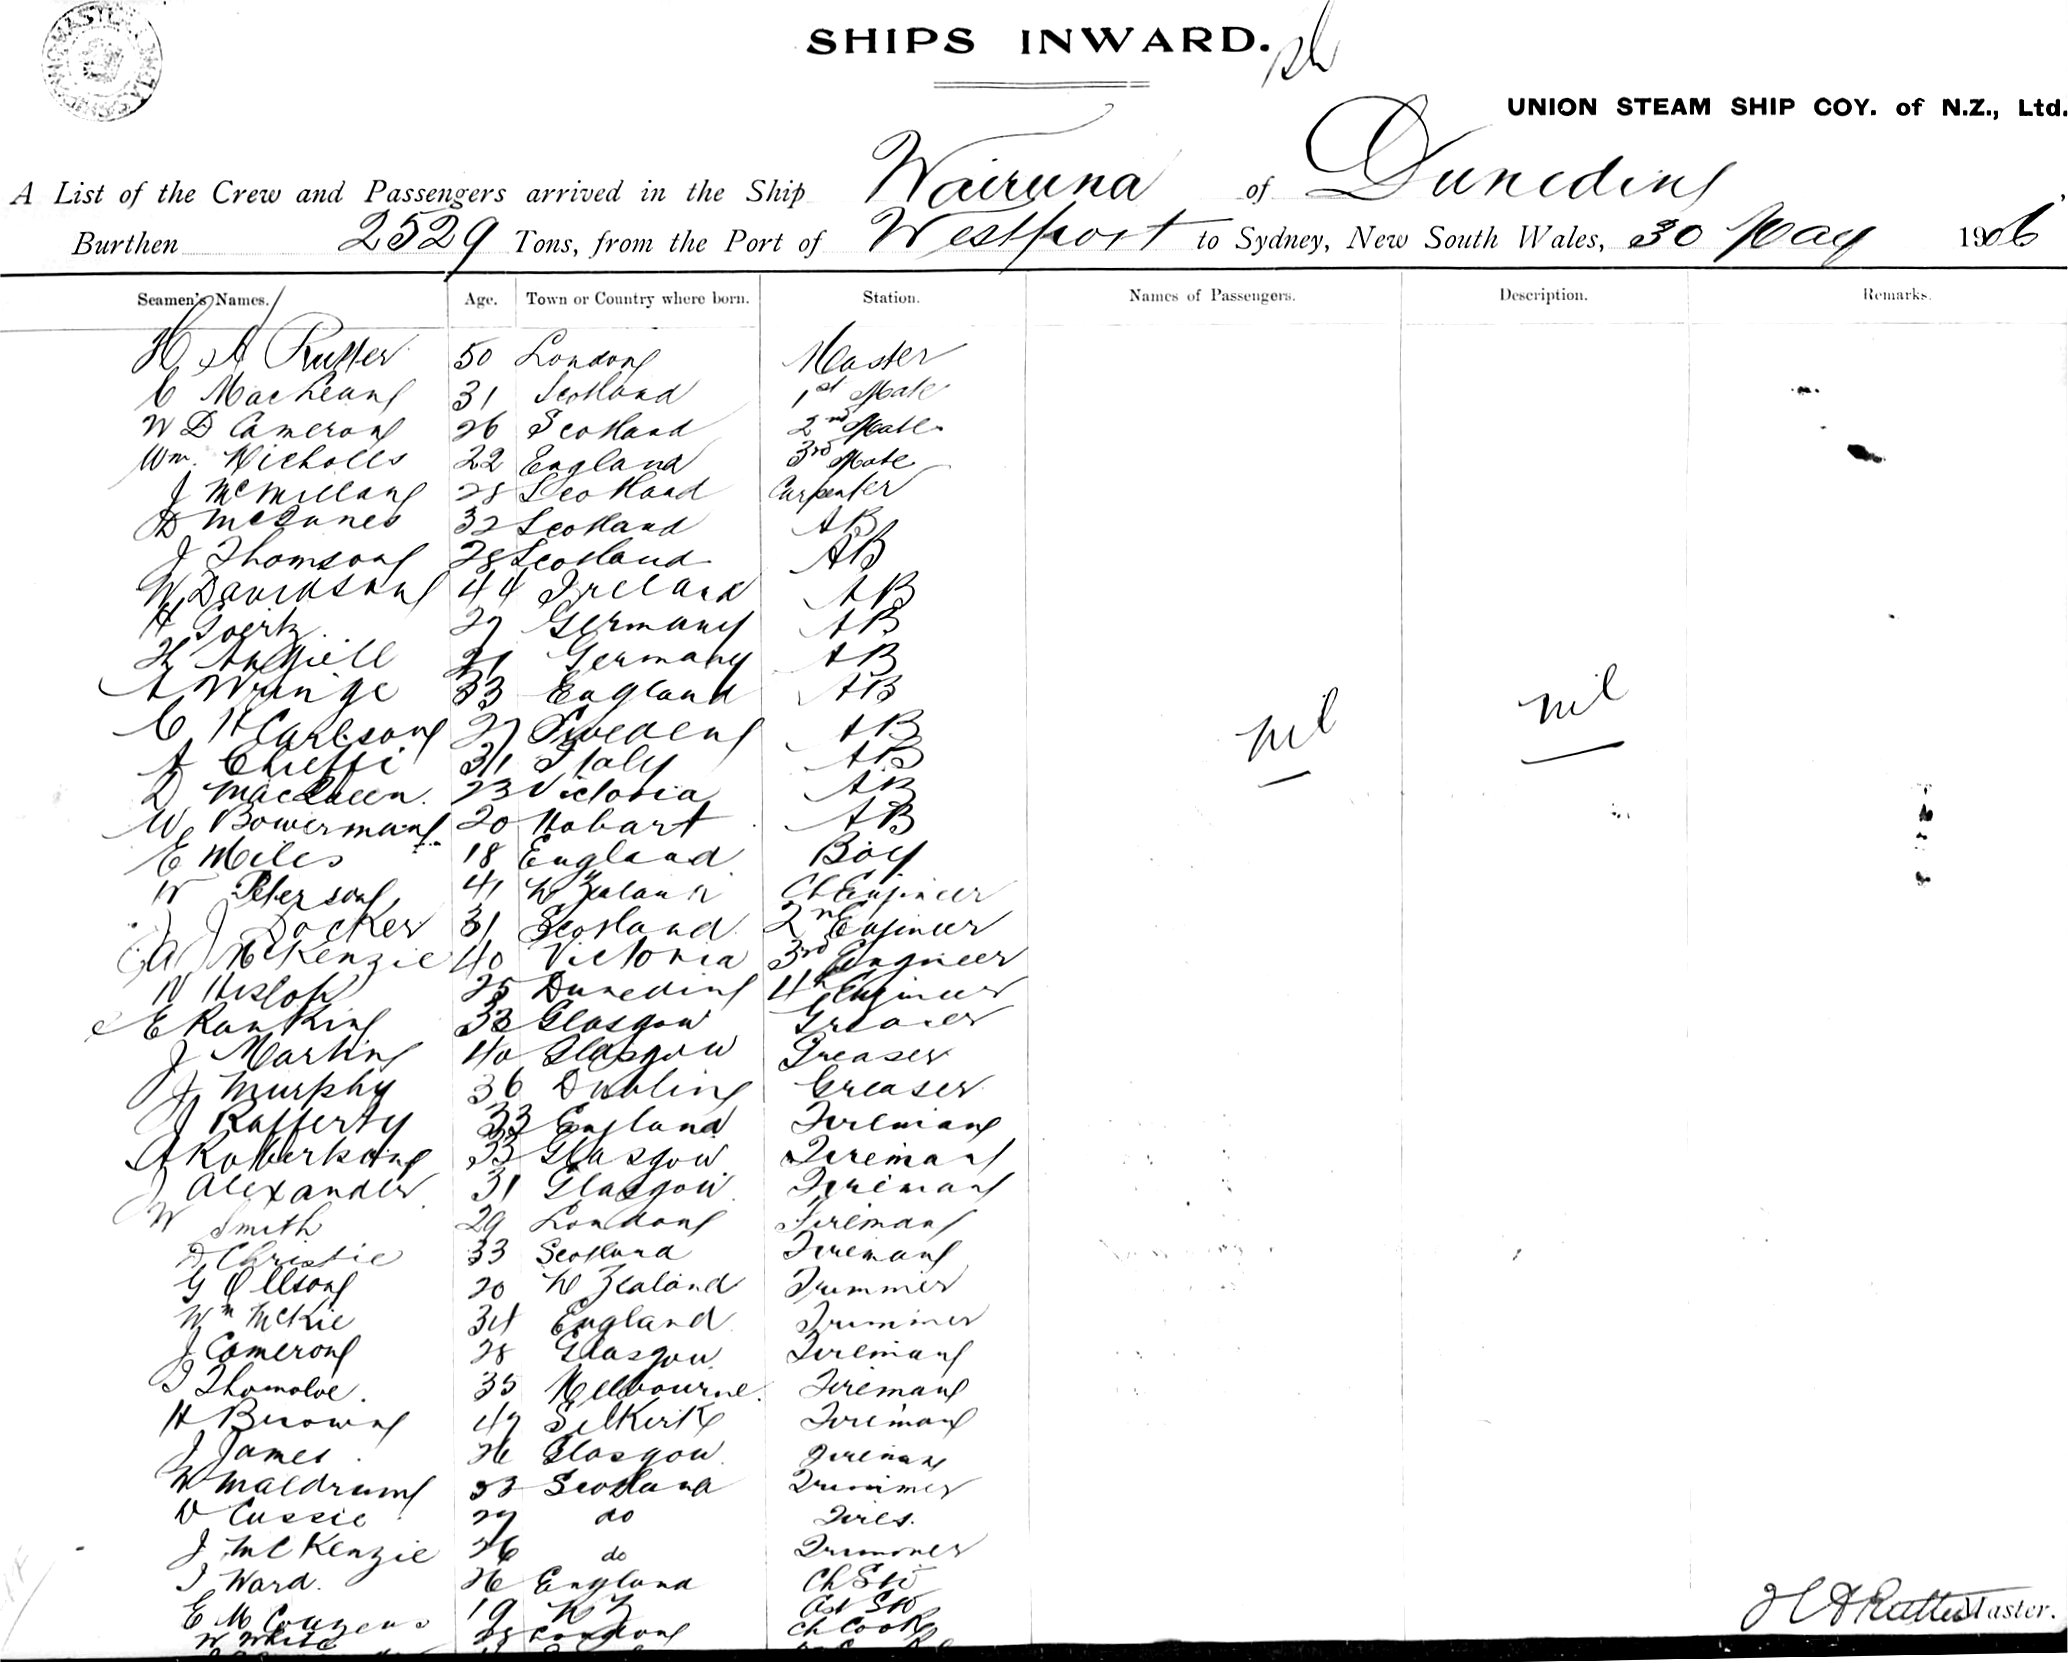 SHIPS INWARD.
UNION STEAM SHIP COY. of N.Z., Ltd.
A List of the Crew and Passengers arrived in the Ship Wairuna of Dunedin
Burthen 2529 Tons, from the Port of Westport to Sydney, New South Wales, 30 May 1906
Seamen's Names. Age. Town or Country where born. Station. Names of Passengers. Description. Remarks.
H A Rutter 50 London Master
C MacLean 31 Scotland 1st Mate
W D Cameron 26 Scotland 2nd Mate
Wm. Nicholls 22 England 3rd Mate
J McMillan 28 Scotland Carpenter
D McInnes 32 Scotland AB
J Thomson 28 Scotland AB
W Davidson 44 Ireland AB
H Goertz 27 Germany AB
H Germany AB
A Wringe 33 England AB
C H Carlson 27 Sweden AB
A Chieffi 31 Italy AB
D MacQueen. 23 Victoria AB
W Bowerman 20 Hobart AB
E Miles 18 England Boy
W Peterson 41 N Zealand Ch Engineer
J Docker 31 Scotland 2nd Engineer
W J McKenzie 40 Victoria 3rd Engineer
N Hislop 25 Dunedin 4th Engineer
E Rankin 33 Glasgow Greaser
J Martin 40 Glasgow Greaser
J Murphy 36 Dublin Greaser
J Rafferty 33 England Fireman
A Robertson 33 Glasgow Fireman
J Alexander 31 Glasgow Fireman
W Smith 29 London Fireman
D Christie 33 Scotland Fireman
G Ollson 20 N Zealand Trimmer
Wm McKie 34 England Trimmer
J Cameron 28 Glasgow Fireman
35 Melbourne. Fireman
H Brown 47 Selkirk Fireman
J James 26 Glasgow Fireman
W Maldrum 23 Scotland Trimmer
D Cussie 27 do Fires.
J McKenzie 26 do Trimmer
J Ward. 26 England Ch Std
E M Couzens 19 N Z Ast Std
W White 28 London Ch Cook
nil nil
H A Rutter Master.